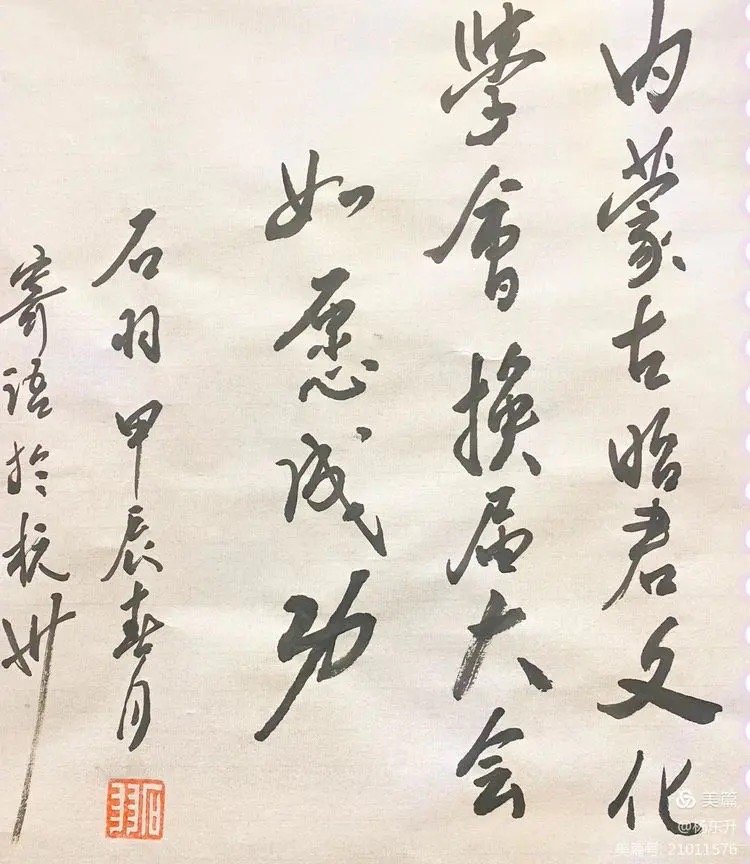 内蒙古昭君文化
學會換届大会
如愿成功
石羽甲辰春月
寄语於杭州
石羽
美篇
@杨东升
美篇号:21011576